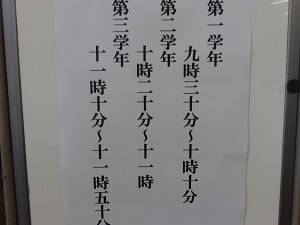 第一学年
九時三十分～十時十分
第二学年
十時二十分～十一時
第三学年
十一時十分～十一時五十分